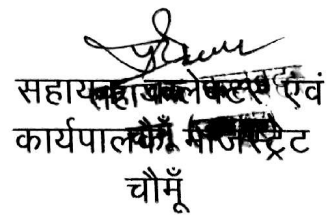 सहायक कलेक्टर एवं
कार्यपालक मजिस्ट्रेट
चौमूँ